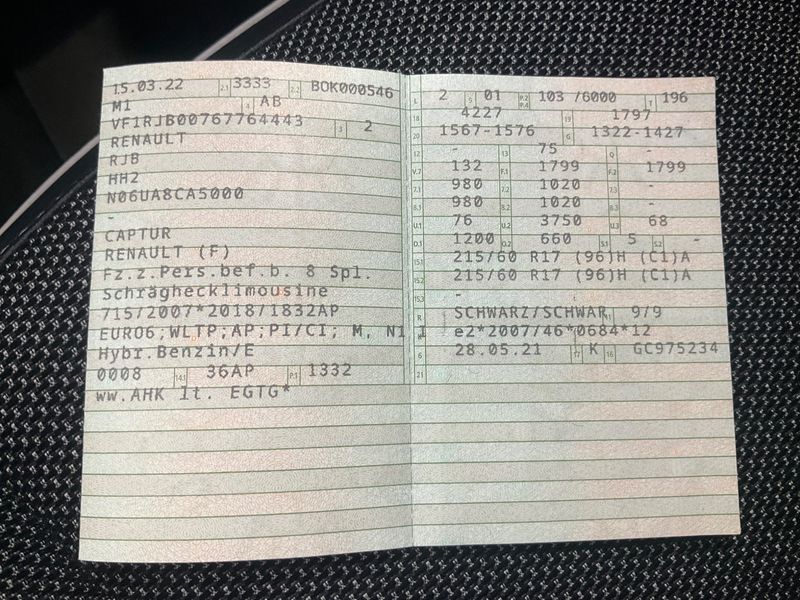 15.03.22 2.1 3333 2.2 BOK000546
M1 AB
VF1RJB00767764443 3 2
RENAULT
RJB
HH2
N06UA8CA5000
-
CAPTUR
RENAULT (F)
Fz.z.Pers.bef.b. 8 Spl.
Schräghecklimousine
715/2007*2018/1832AP
EURO6;WLTP;AP;PI/CI; M, N1 I
Hybr.Benzin/E
0008 14.1 36AP P.1 1332
ww.AHK lt. EGTG*
L 2 9 01 P.2 P.4 103 /6000 T 196
18 4227 19 1797
20 1567-1576 G 1322-1427
12 - 13 75 Q -
V.7 132 F.1 1799 F.2 1799
7.1 980 7.2 1020 7.3 -
8.1 980 8.2 1020 8.3 -
U.1 76 U.2 3750 U.3 68
O.1 1200 O.2 660 S.1 5 S.2 -
15.1 215/60 R17 (96)H (C1)A
15.2 215/60 R17 (96)H (C1)A
15.3 -
R SCHWARZ/SCHWAR 9/9
K e2*2007/46*0684*12
6 28.05.21 17 K 16 GC975234
21